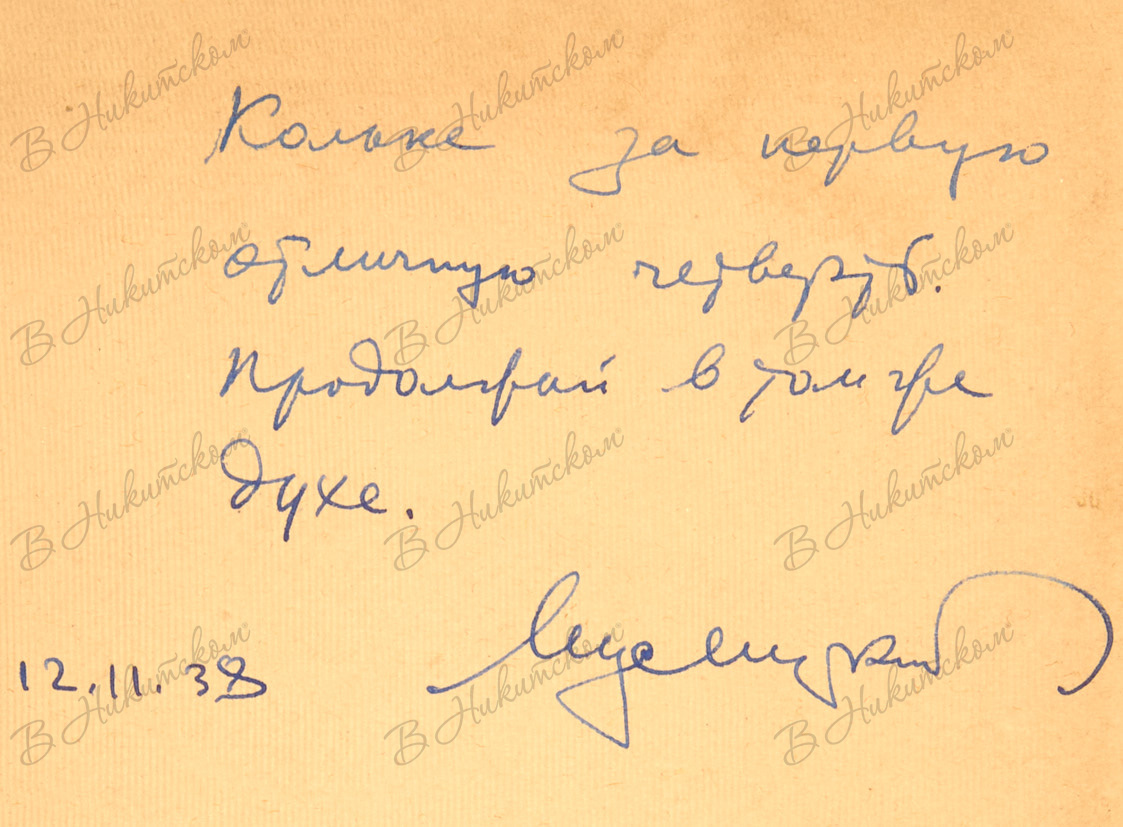 В Никитском® В Никитском® В Никитском®
Кольке за первую
отличную четверть.
В Никитском® В Никитском® В Никитском®
Продолжай в том же
духе.
В Никитском® В Никитском® В Никитском®
12.11.38
В Никитском® В Никитском® В Никитском®